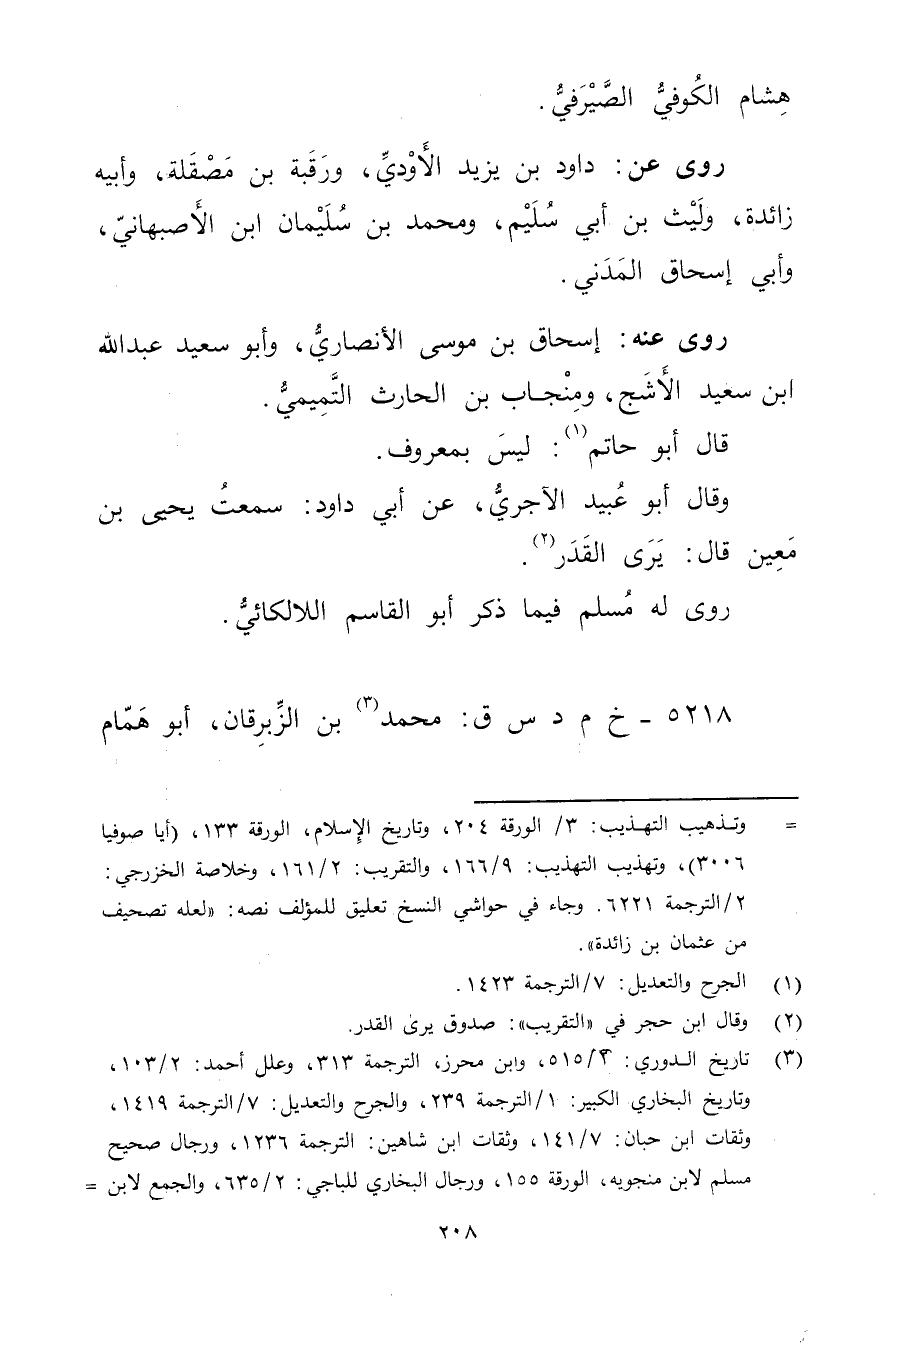 هِشام الكُوفيُّ الصَّيْرَفيُّ.
روى عن: داود بن يزيد الأَوْديِّ، ورَقَبة بن مَصْقَلة، وأبيه
زائدة، ولَيْث بن أبي سُلَيْم، ومحمد بن سُلَيْمان ابن الأَصبهانيّ،
وأبي إسحاق المَدَني.
روى عنه: إسحاق بن موسى الأنصاريُّ، وأبو سعيد عبدالله
ابن سعيد الأَشَج، ومِنْجاب بن الحارث التَّمِيميُّ.
قال أبو حاتم(١): ليسَ بمعروف.
وقال أبو عُبيد الآجريُّ، عن أبي داود: سمعتُ يحيى بن
مَعِين قال: يَرَى القَدَر(٢).
روى له مُسلم فيما ذكر أبو القاسم اللالكائيُّ.
٥٢١٨ - خ م د س ق: محمد(٣) بن الزِّبرِقان، أبو هَمّام
= وتذهيب التهذيب: ٣/ الورقة ٢٠٤، وتاريخ الإسلام، الورقة ١٣٣، (أيا صوفيا
٣٠٠٦)، وتهذيب التهذيب: ١٦٦/٩، والتقريب: ١٦١/٢، وخلاصة الخزرجي:
٢/الترجمة ٦٢٢١. وجاء في حواشي النسخ تعليق للمؤلف نصه: «لعله تصحيف
من عثمان بن زائدة».
(١) الجرح والتعديل: ٧/الترجمة ١٤٢٣.
(٢) وقال ابن حجر في «التقريب»: صدوق يرى القدر.
(٣) تاريخ الدوري: ٥١٥/٢، وابن محرز، الترجمة ٣١٣، وعلل أحمد: ١٠٣/٢،
وتاريخ البخاري الكبير: ١/الترجمة ٢٣٩، والجرح والتعديل: ٧/الترجمة ١٤١٩،
وثقات ابن حبان: ١٤١/٧، وثقات ابن شاهين: الترجمة ١٢٣٦، ورجال صحيح
مسلم لابن منجويه، الورقة ١٥٥، ورجال البخاري للباجي: ٦٣٥/٢، والجمع لابن =
٢٠٨